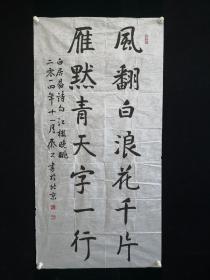 風翻白浪花千片
雁默青天字一行
白居易詩句江樓晚眺
二零一四年十一月
書於北京